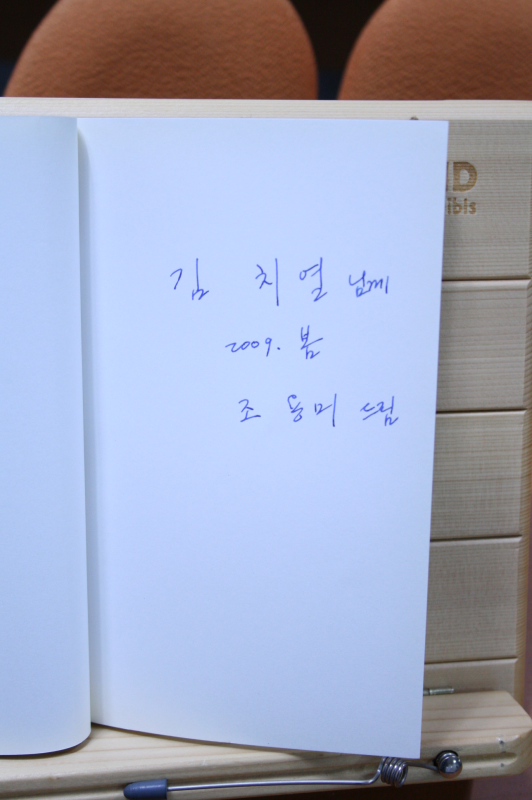 김 치열 님께
2009. 봄
조 용미 드림
ibis